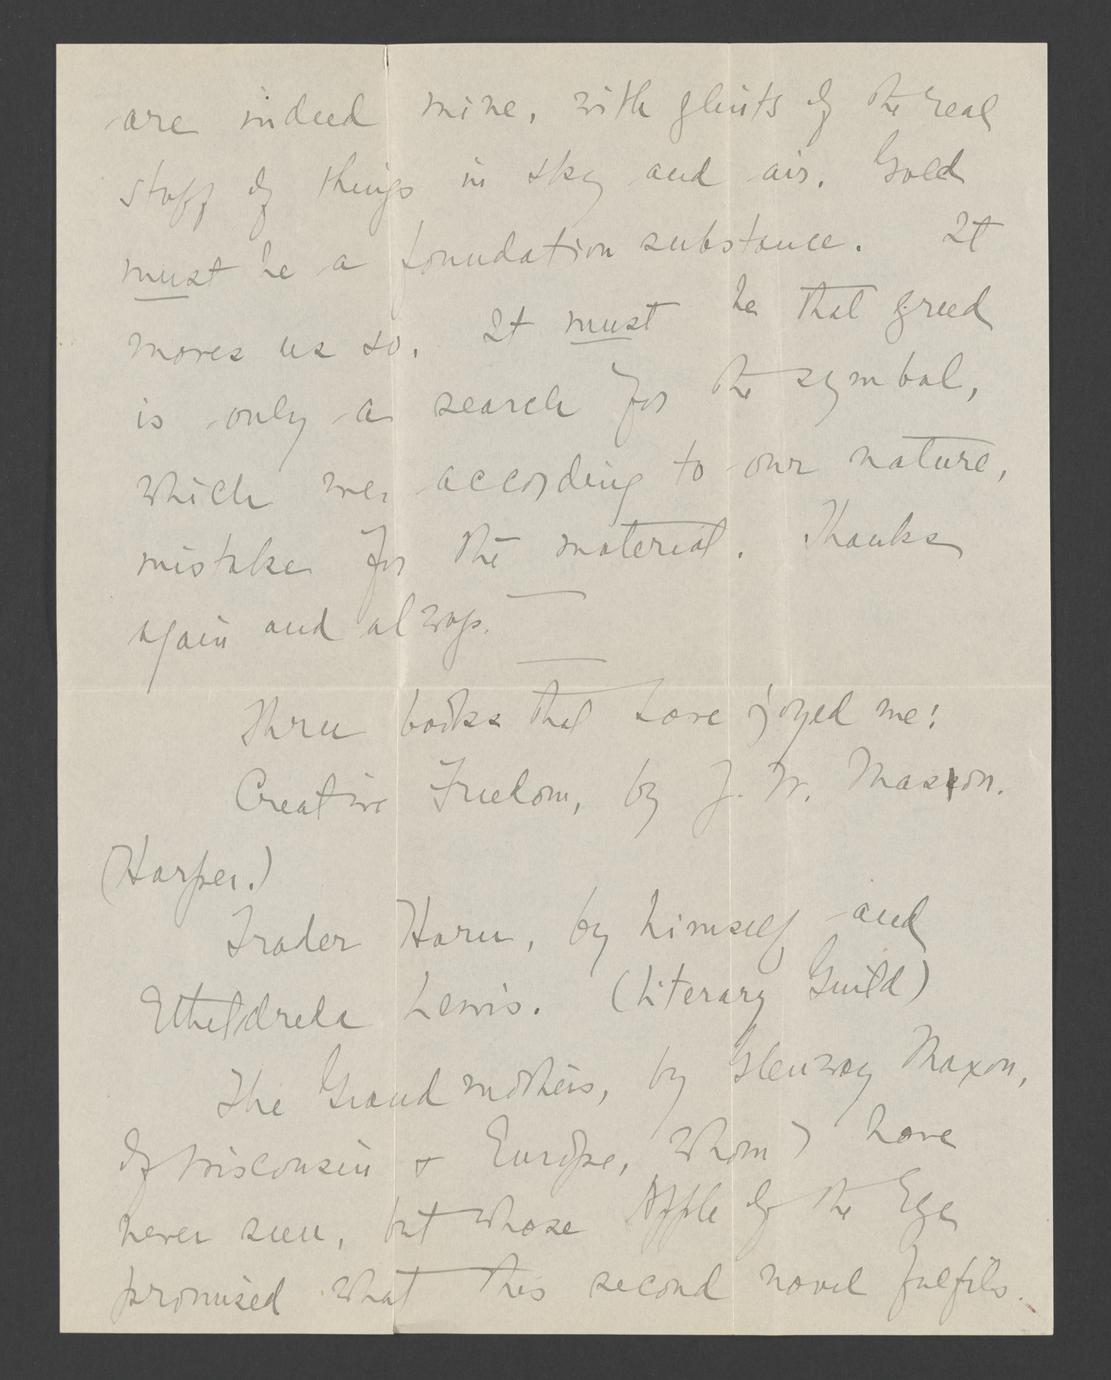 are indeed mine, with glints of the real
stuff of things in sky and air. Gold
must be a foundation substance. It
moves us so. It must be that greed
is only a search for the symbol,
which we, according to our nature,
mistake for the material. Thanks
again and always. —
Three books that have joyed me:
Creative Freedom, by J. W. Mason.
(Harper.)
Trader Horn, by himself and
Etheldreda Lewis. (Literary Guild)
The Grandmothers, by Glenway Maxon,
of Wisconsin + Europe, whom I have
never seen, but whose Apple of the Eye
promised what this second novel fulfils.